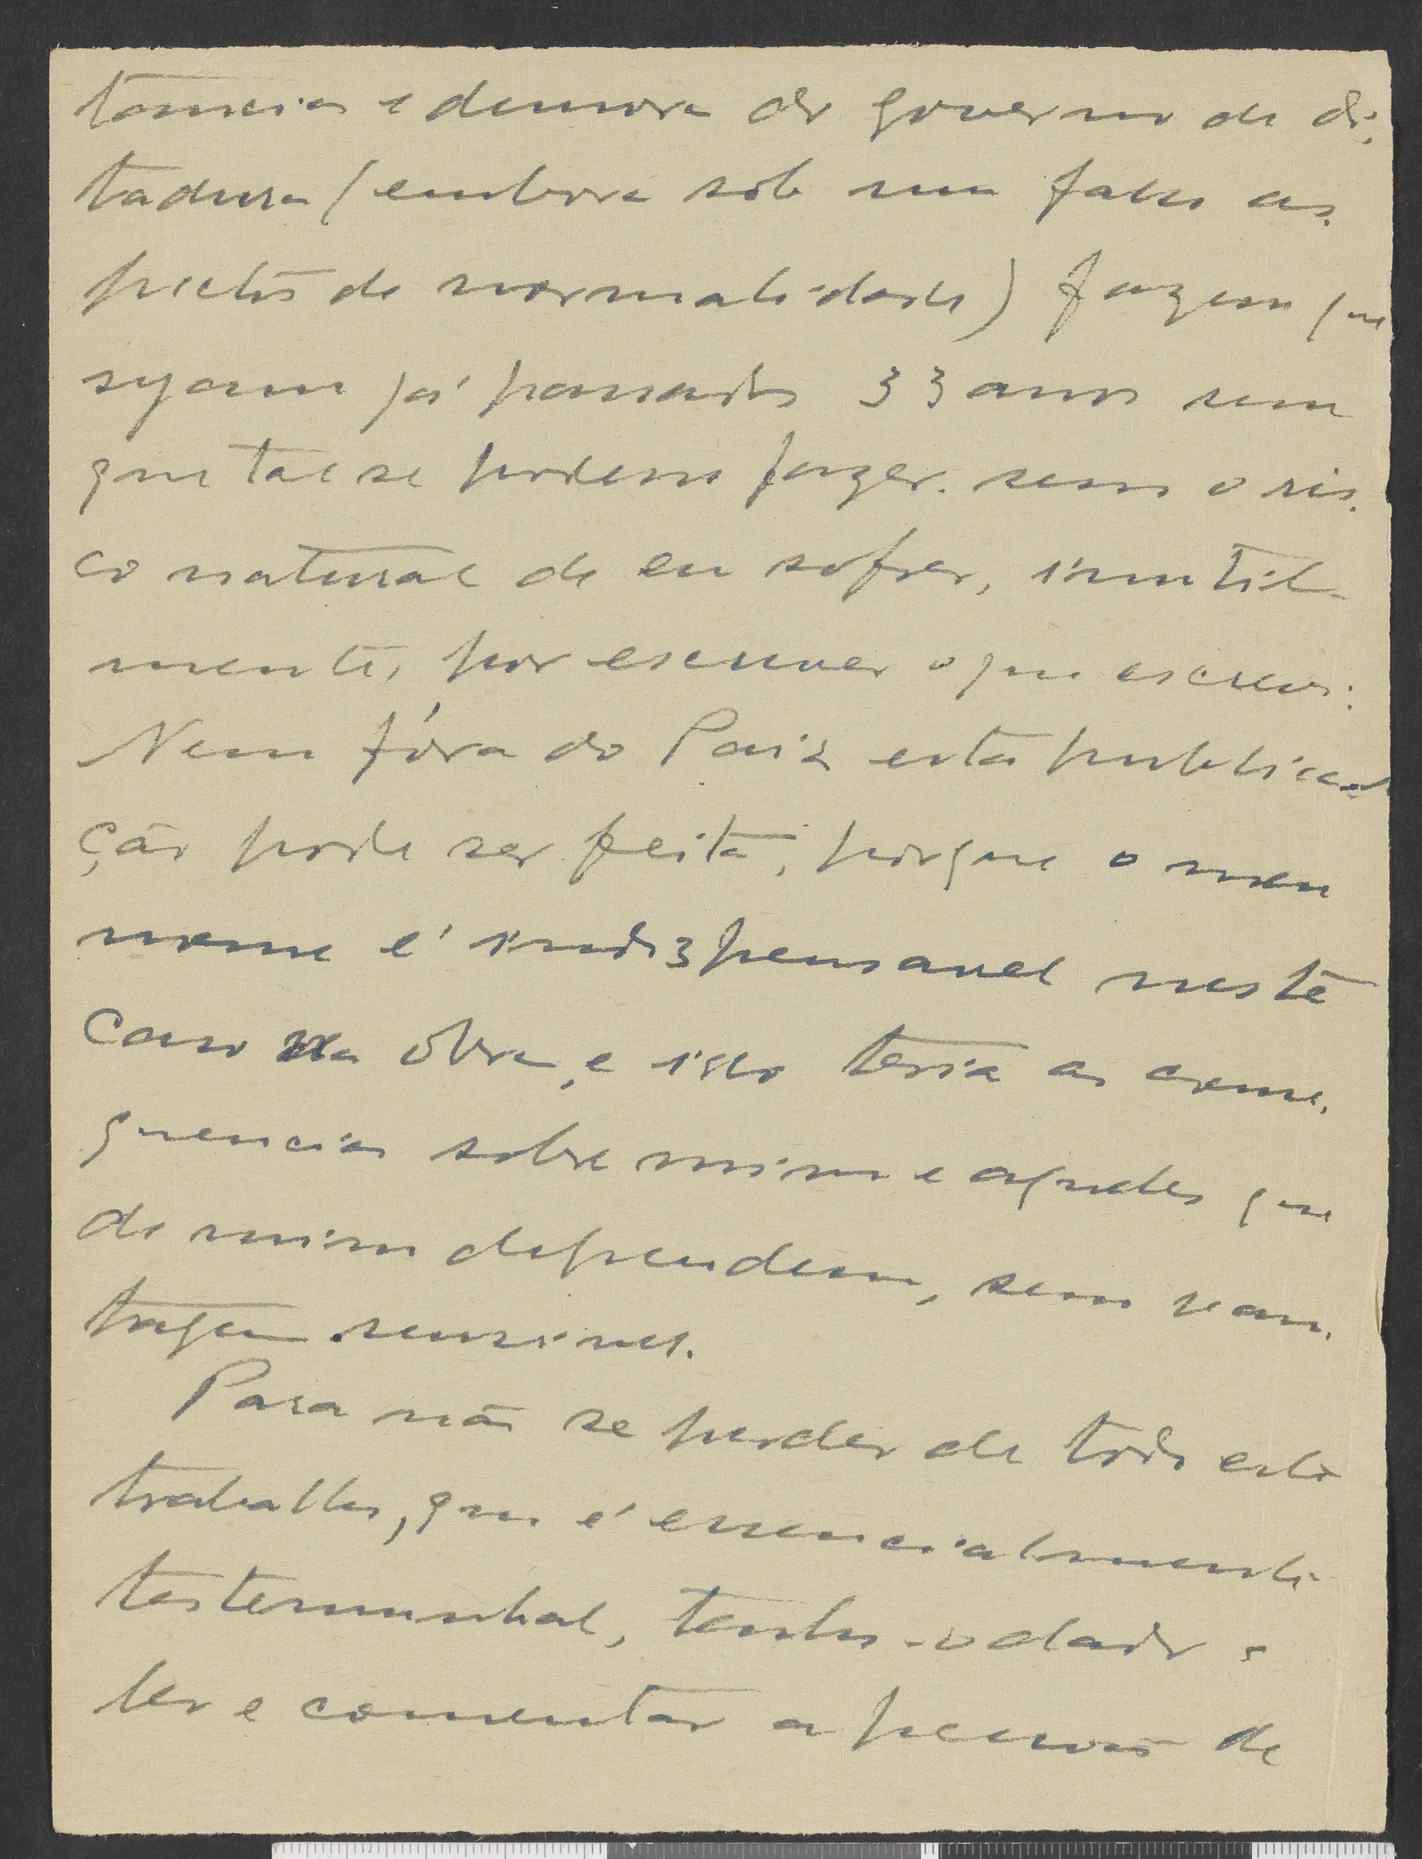 tancia e demora do governo de di-
tadura (embora sob um falso as-
pecto de normalidade) fazem que
sejam já passados 33 anos sem
que tal se podesse fazer. sem o ris-
co natural de eu sofrer, inutil-
mente, por escrever o que escrevi.
Nem fóra do Paiz esta publica-
ção pode ser feita, porque o meu
nome é indispensavel neste
caso na obra, e isso teria as conse-
quencias sobre mim e aqueles que
de mim dependem, sem van-
tagem sensivel.
Para não se perder de todo este
trabalho, que é essencialmente
testemunhal, tenho-o dado a
ler e comentar a pessoas de